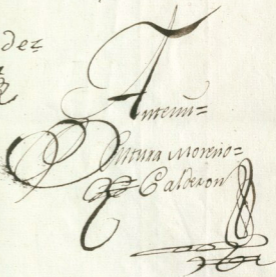 dez
Antemi=
Ventura Moreno=
Calderon